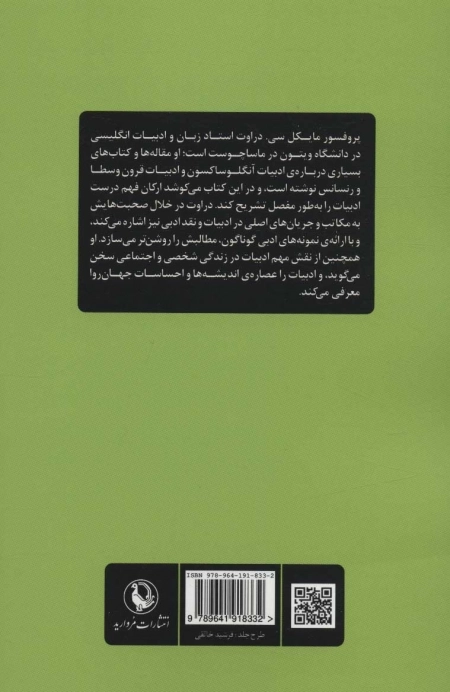 پروفسور مایکل سی. دراوت استاد زبان و ادبیات انگلیسی
در دانشگاه ویتون در ماساچوست است؛ او مقاله‌ها و کتاب‌های
بسیاری درباره‌ی ادبیات آنگلوساکسون و ادبیات قرون وسطا
و رنسانس نوشته است، و در این کتاب می‌کوشد ارکان فهم درست
ادبیات را به‌طور مفصل تشریح کند. دراوت در خلال صحبت‌هایش
به مکاتب و جریان‌های اصلی در ادبیات و نقد ادبی نیز اشاره می‌کند،
و با ارائه‌ی نمونه‌های ادبی گوناگون، مطالبش را روشن‌تر می‌سازد. او
همچنین از نقش مهم ادبیات در زندگی شخصی و اجتماعی سخن
می‌گوید، و ادبیات را عصاره‌ی اندیشه‌ها و احساسات جهان‌روا
معرفی می‌کند.
انتشارات مروارید
ISBN 978-964-191-833-2
9 789641 918332
طرح جلد: فرشید خالقی